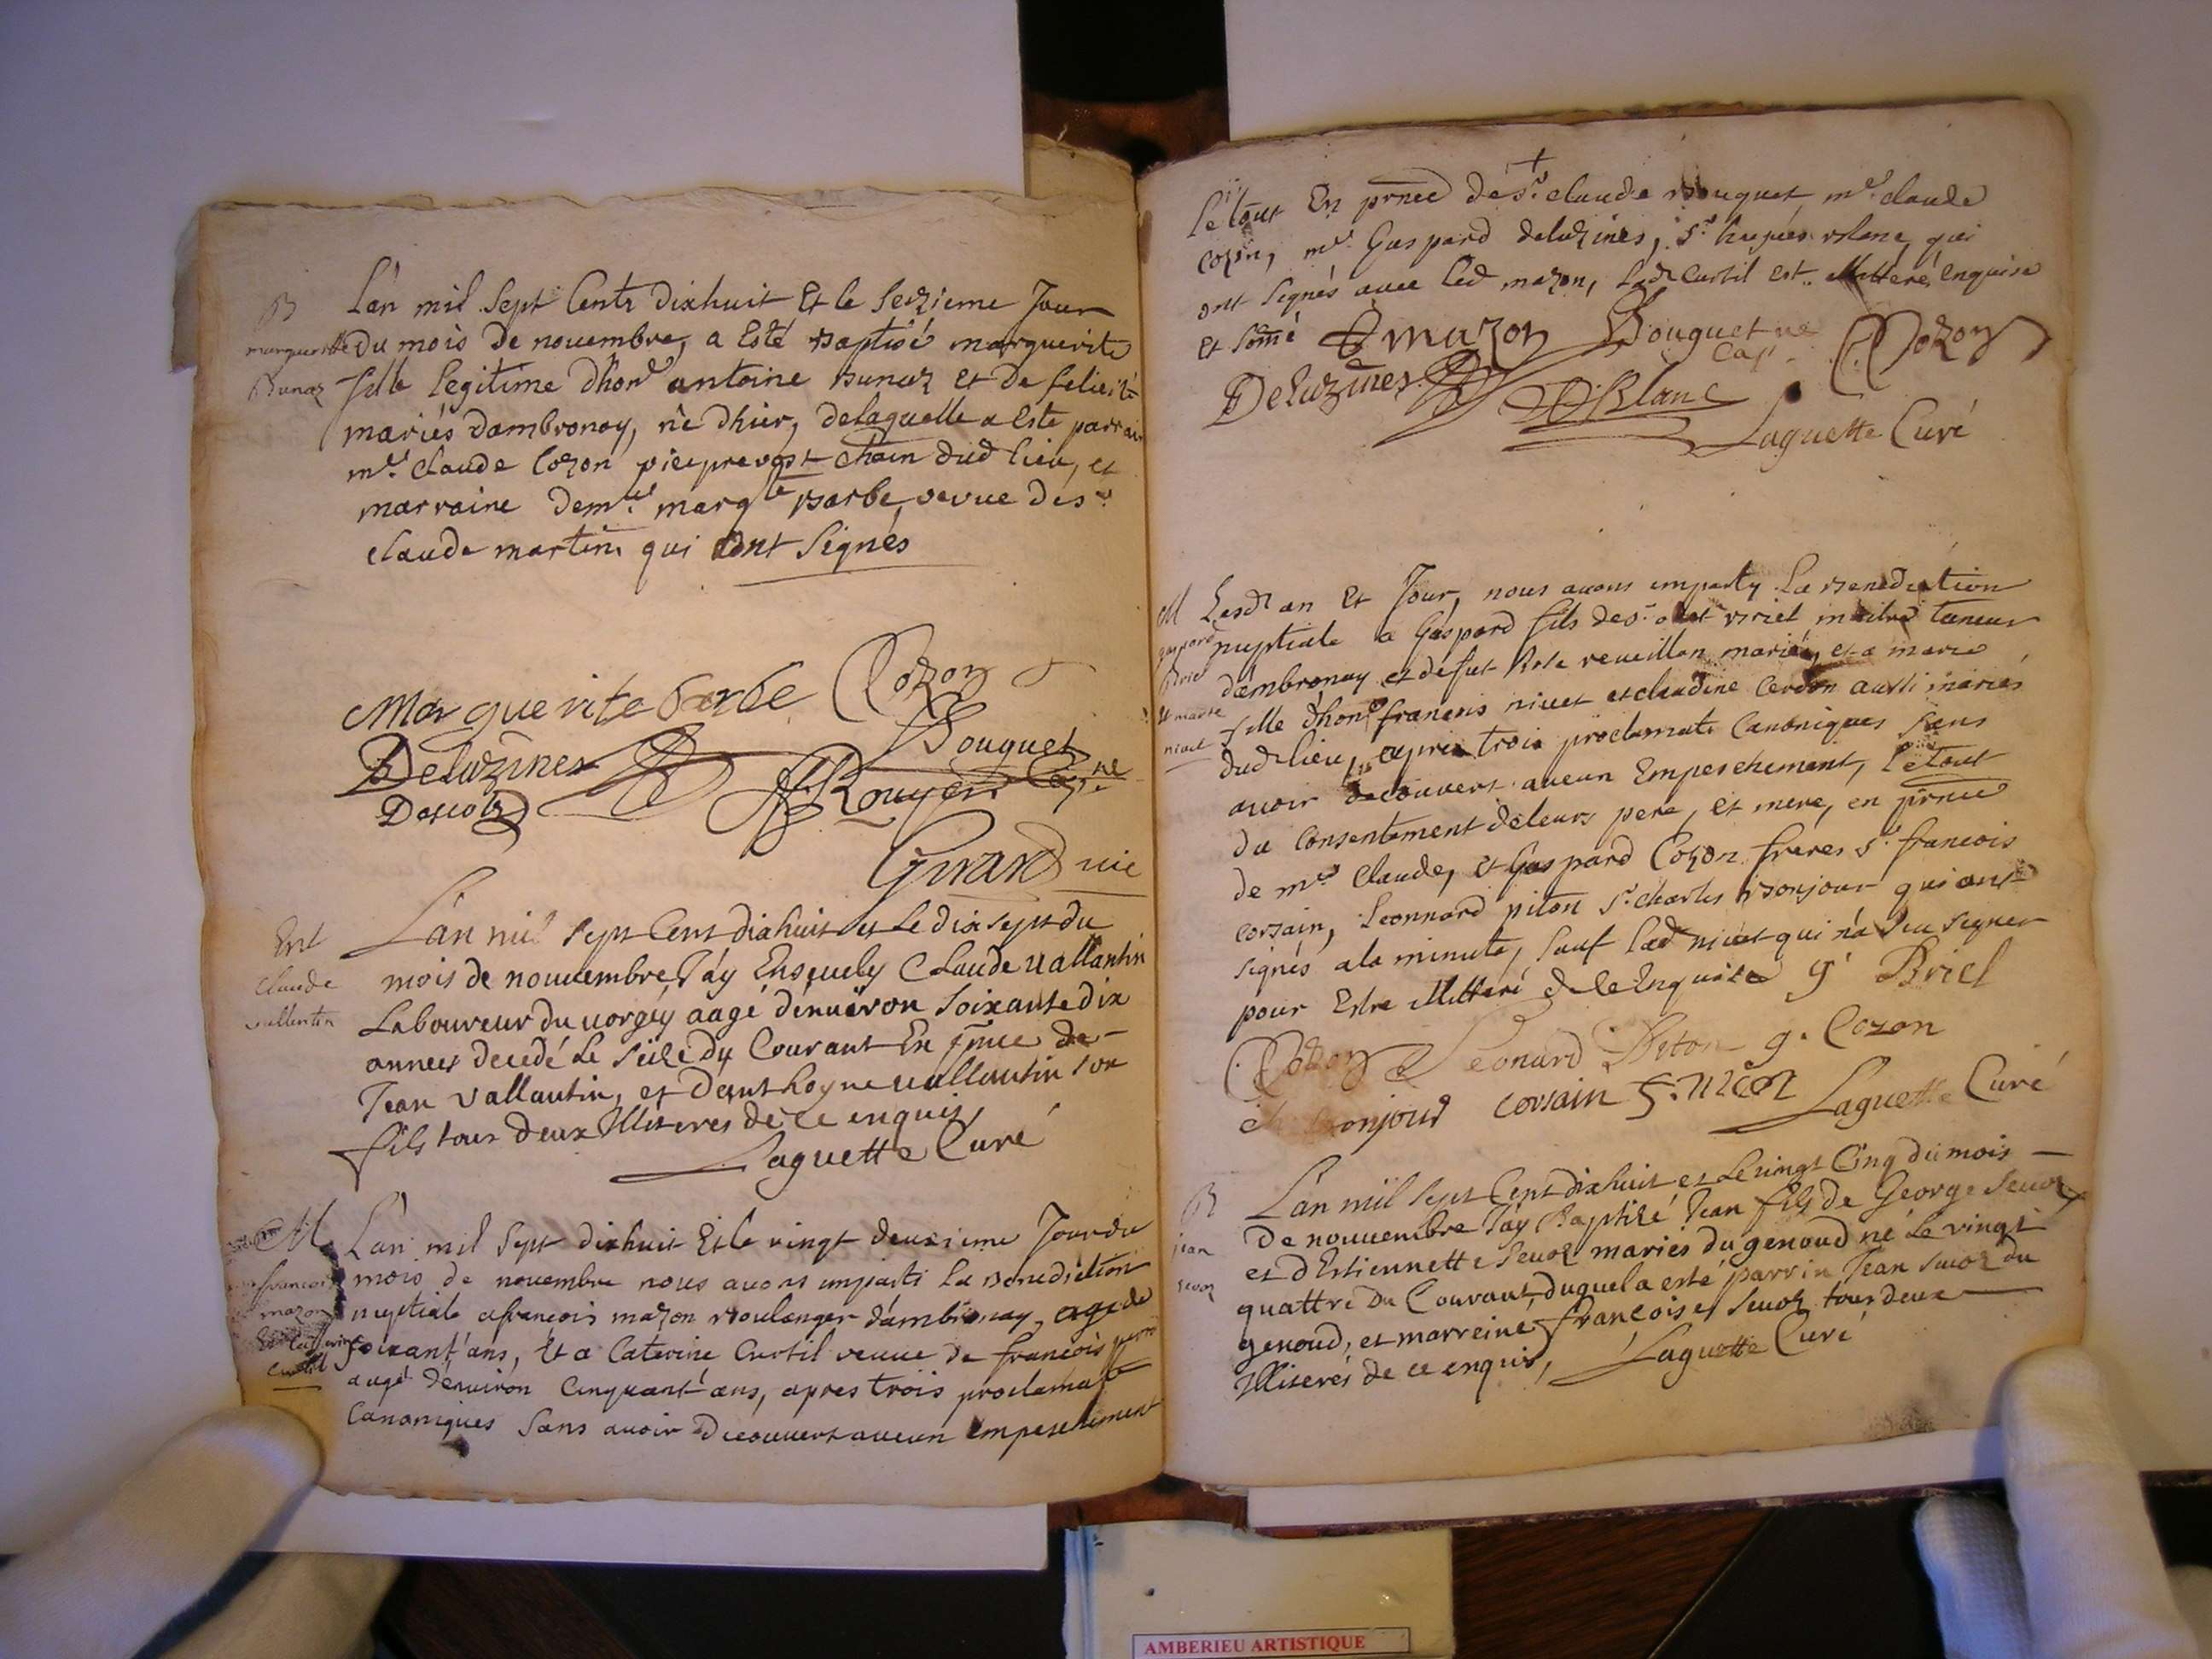 B
marguerite
Bunaz
L'an mil sept Cents dixhuit Et le seizieme Jour
du mois de novembre, a Esté Baptisé marguerite
fille legitime d'hon^e antoine Bunaz et de felicité
mariés dambronay, né d'hier, delaquelle a Este parrain
m^e Claude Cozon prevost dud lieu, et
marraine dem^lle marg^te Barbe, vevue de s^r
claude martin qui ont signés
Marguerite barbe Cozon
Deluzines Bouguet
Cap^ne
Girard vic
Ent
Claude
vallentin
L'an mil sept Cent dixhuit et Le dix sept du
mois de nouvembre J'áy Ensevely Claude vallantin
Laboureur du vorgey aagé d'environ soixante dix
années decedé Le seize du Courant En pñce de
Jean vallantin, et d'anthoyne vallantin son
fils tous deux Illiteres de ce enquis,
Laguette Curé
M
francois
mazon
Et Catterine
Curtil
L'an mil sept dixhuit Et le vingt deuxieme Jour du
mois de novembre nous avons imparti la Benediction
nuptiale a francois mazon Boulanger d'ambronay, age de
soixant'ans, Et a Caterine Curtil veuve de francois
augé d'environ Cinquant'ans, apres trois proclamats
Canoniques sans avoir decouvert aucun empeschement
Le tout En prñce de s^r claude Bouguet, m^e claude
cozon, m^e Gaspard deluzines, s^r hugues blanc, qui
ont signés avec led mazon, lad Curtil est illitteré, Enquise
Et somé mazon Bouguet
Cap^ne Cozon
Deluzines Blanc
Laguette Curé
M
gaspard
briel
Et marie
nivet
Lesd an Et Jour, nous avons imparty La Benediction
nuptiale a Gaspard fils de s^r briel maitre taneur
d'ambronay et de fut reveillon mariés, et a marie
fille d'hon^e francois nivet et claudine Cerdon aussi mariés
dud lieu, apres trois proclamats Canoniques sans
avoir decouvert aucun Empeschement, Le tout
du Consentement de leurs pere, Et mere, en prñce
de m^e Claude, Et Gaspard Cozon freres s^r francois
corsain, Leonnard piton s^r charles Bonjour qui ont
signés a la minute, sauf lad nivet qui n'a sceu signer
pour Estre illitteré de le Enquise g Briel
Cozon Leonard Piton g. Cozon
ch bonjour corsain f. nivet Laguette Curé
B
jean
sevoz
L'an mil sept Cent dixhuit et Le vingt Cinq du mois
de nouvembre J'áy Baptizé Jean fils de George sevoz
et d'Estiennette sevoz mariés du genoud né Le vingt
quattre du Courant, duquel a esté parrin Jean sevoz du
genoud, et marreine francoise sevoz tous deux
Illiterés de ce enquis, Laguette Curé
AMBERIEU ARTISTIQUE